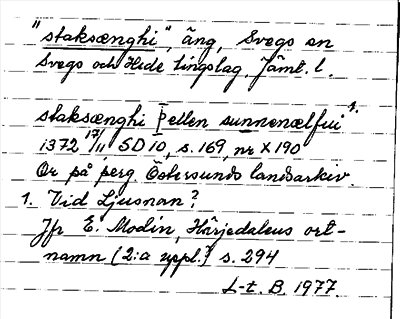 "staksænghi", äng, Svegs sn
Svegs och Hede tingslag, Jämt. l.
staksænghi Þ ellen sunnonælfui 1.
1372 17/11 SD 10, s. 169, nr X 190
Or på perg Östersunds landsarkiv.
1. Vid Ljusnan?
Jfr E. Modin, Härjedalens ort-
namn (2:a uppl.) s. 294
L-t. B. 1977.